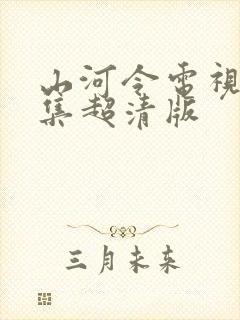 山河令電視
集超清版
三月未来